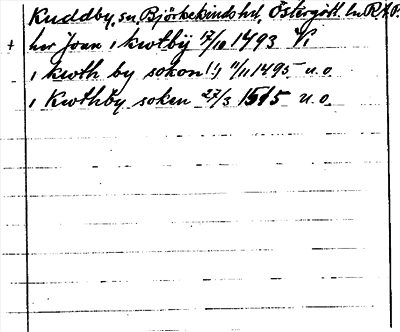 Kuddby, sn, Björkekinds hd, Östergötl. ln R.A.P.
+ her Joan i kwtby 17/10 1493 Vi
- i kwth by sokon (!) 11/11 1495 u.o.
i Kwthby soken 27/3 1515 u.o.